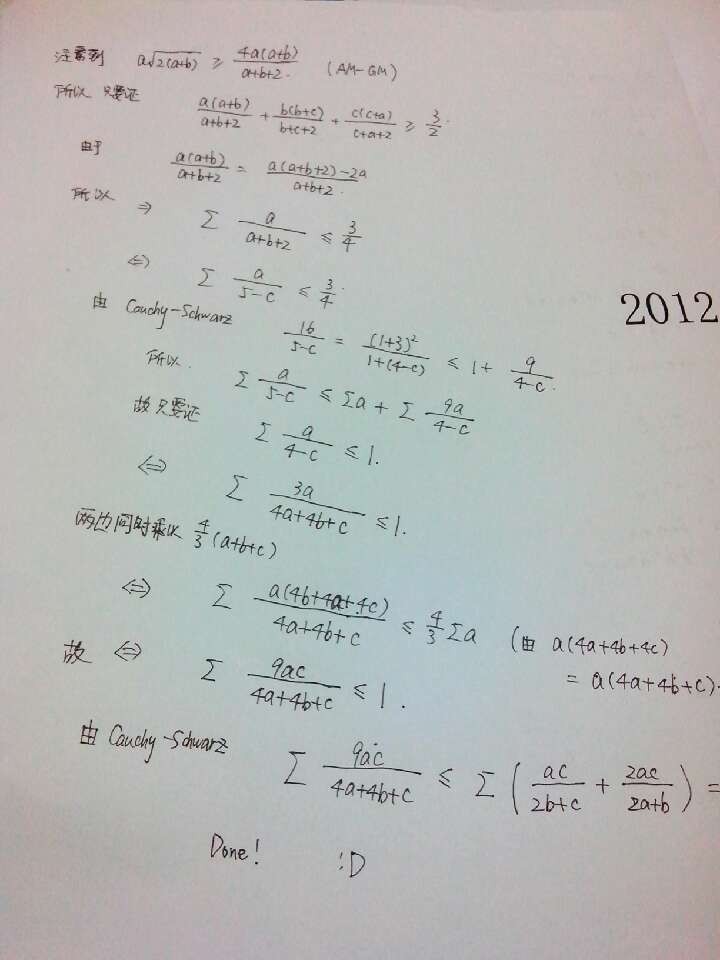 注意到 a√2(a+b) ≥ 4a(a+b)/a+b+2. (AM-GM)
所以 只要证 a(a+b)/a+b+2 + b(b+c)/b+c+2 + c(c+a)/c+a+2 ≥ 3/2.
由于 a(a+b)/a+b+2 = a(a+b+2)-2a/a+b+2.
所以 ⇒ Σ a/a+b+2 ≤ 3/4
⇔ Σ a/5-c ≤ 3/4.
2012
由 Cauchy-Schwarz 16/5-c = (1+3)²/1+(4-c) ≤ 1 + 9/4-c.
所以. Σ a/5-c ≤ Σa + Σ 9a/4-c
故只要证 Σ a/4-c ≤ 1.
⇔ Σ 3a/4a+4b+c ≤ 1.
两边同时乘以 4/3 (a+b+c)
⇔ Σ a(4b+4a+4c)/4a+4b+c ≤ 4/3 Σa (由 a(4a+4b+4c)
= a(4a+4b+c).
故 ⇔ Σ 9ac/4a+4b+c ≤ 1.
由 Cauchy-Schwarz Σ 9ac/4a+4b+c ≤ Σ ( ac/2b+c + 2ac/2a+b ) =
Done! :D